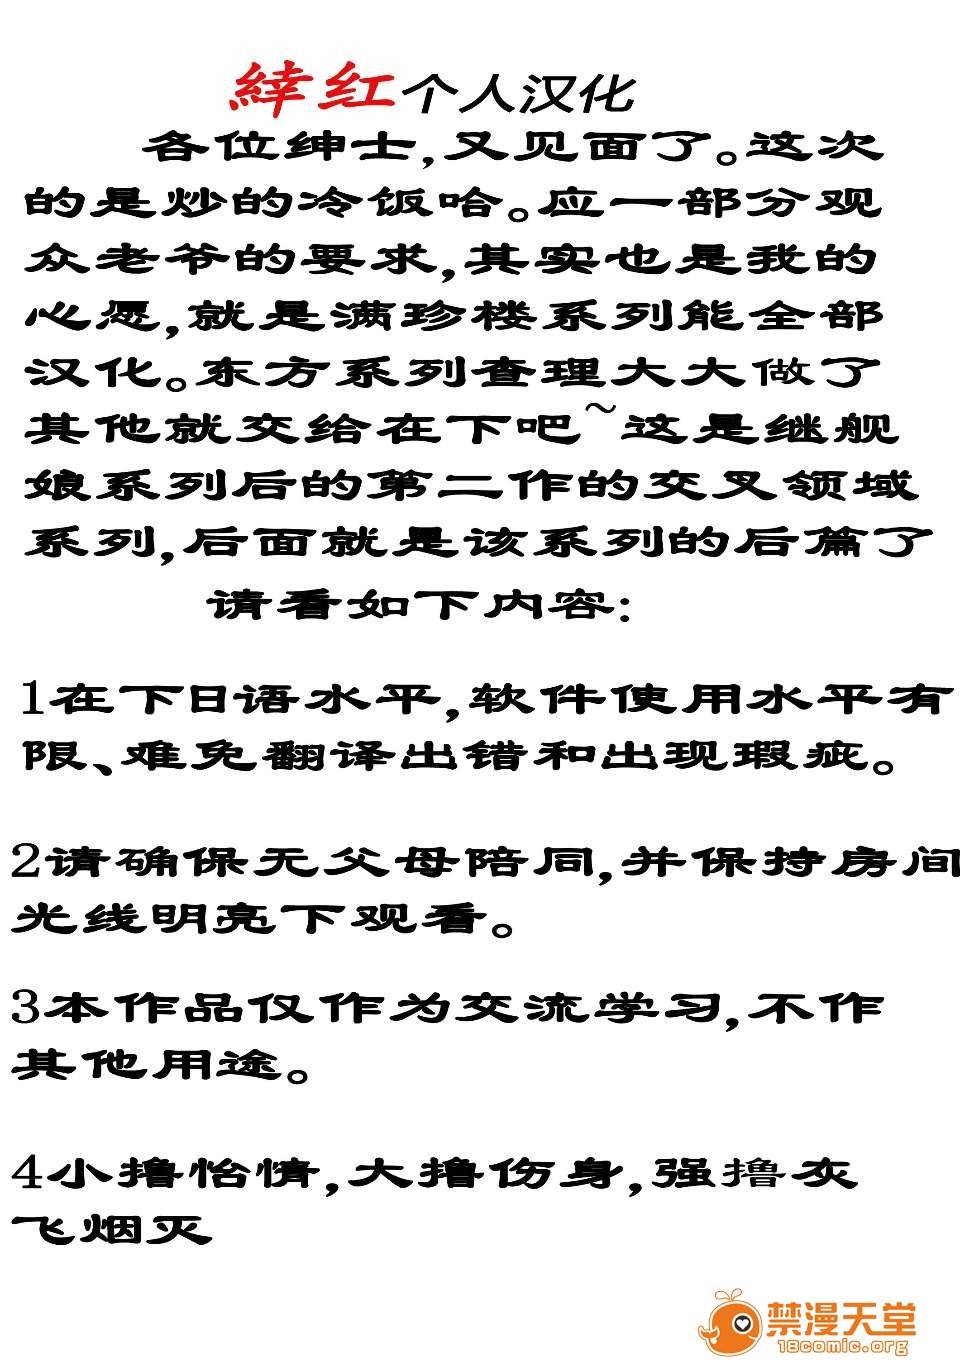 緈红个人汉化
各位绅士,又见面了。这次
的是炒的冷饭哈。应一部分观
众老爷的要求,其实也是我的
心愿,就是满珍楼系列能全部
汉化。东方系列查理大大做了
其他就交给在下吧~这是继舰
娘系列后的第二作的交叉领域
系列,后面就是该系列的后篇了
请看如下内容:
1在下日语水平,软件使用水平有
限、难免翻译出错和出现瑕疵。
2请确保无父母陪同,并保持房间
光线明亮下观看。
3本作品仅作为交流学习,不作
其他用途。
4小撸怡情,大撸伤身,强撸灰
飞烟灭
禁漫天堂
18comic.org